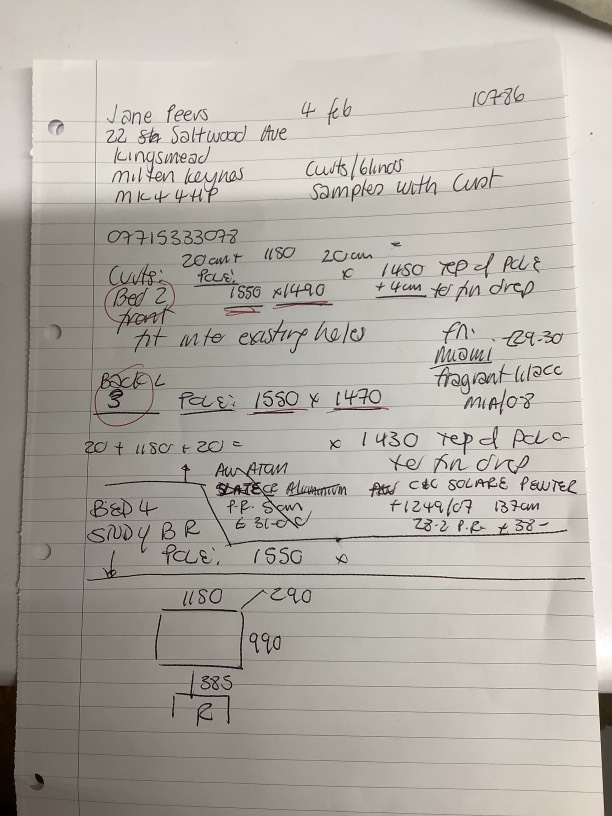 Jane Peers 4 feb 10786
22 Saltwood Ave
Kingsmead
milton keynes curts/blinds
MK4 4HP samples with cust
07715333078
20cm+ 1180 20cm =
Curts: POLE: x 1450 rep of POLE
Bed 2 1550 x 1490 + 4cm to fin drop
front
fit into existing holes
fn: £29-30
miami
fragrant lilacc
MIA/08
BACK L
3 POLE: 1550 x 1470
20 + 1180 + 20 = x 1430 rep of Pole
to fin drop
ALUMINIUM C&C SOLARE PEWTER
BED 4 P.R. 8cm +1249/07 137cm
STUDY BR £31- 28.2 P.R. £38-
POLE: 1550 x
1180 290
990
385
R